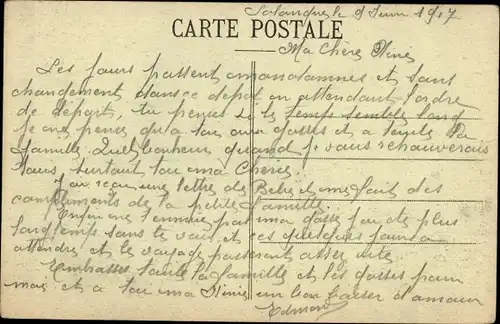 CARTE POSTALE
le 9 Juin 1917
Ma Chère
Les jours passent monotonnes et sans
changement dans ce dépot en attendant l'ordre
de départ, tu penses si le temps semble long
je ne pense qu'a toi aux gosses et a toute la
famille Quel bonheur quand je vous
tous surtout toi ma Cherie.
J'ai reçu une lettre de Bebe et me fait des
compliments de la petite famille.
Enfin ne t'ennuie pas ma gosse j'ai de plus
longtemps sans te voir et ces quelques jours a
attendre et le voyage passeront assez vite
Embrasses toute la famille et les gosses pour
moi et a toi ma un bon baiser d'amour
Edmond